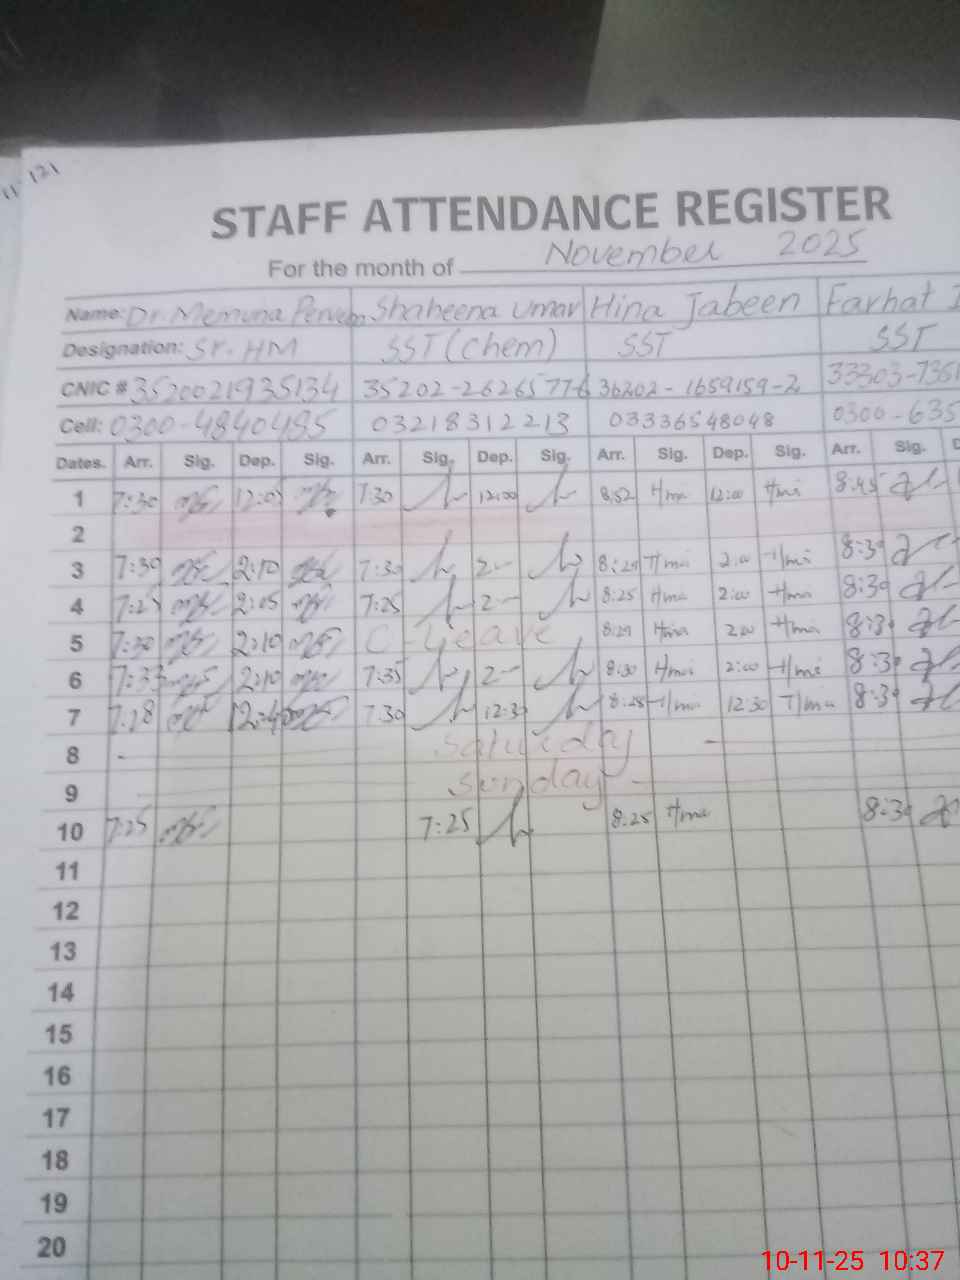 11 121
STAFF ATTENDANCE REGISTER
For the month of November 2025
Name: Dr. Memuna Perveen Shaheena Umar Hina Jabeen Farhat
Designation: Sr. HM SST (Chem) SST SST
CNIC # 3520021935134 35202-2626577-6 36202-1659159-2 33303-735
Cell: 0300-4840485 03218312213 03336548048 0300-635
Dates. Arr. Sig. Dep. Sig. Arr. Sig. Dep. Sig. Arr. Sig. Dep. Sig. Arr. Sig. D
1 7:30 12:0 7:30 12:00 8:52 Hina 12:00 Hina 8:45
2
3 7:30 2:10 7:30 2- 8:25 Hina 2:00 Hina 8:30
4 7:25 2:05 7:25 2- 8:25 Hina 2:00 Hina 8:30
5 7:30 2:10 C-Leave 8:29 Hina 2:00 Hina 8:30
6 7:33 2:10 7:35 2- 8:30 Hina 2:00 Hina 8:30
7 7:28 12:40 7:30 12:30 8:25 Hina 12:30 Hina 8:30
8 - Saturday -
9 Sunday -
10 7:25 7:25 8:25 Hina 8:30
11
12
13
14
15
16
17
18
19
20
10-11-25 10:37